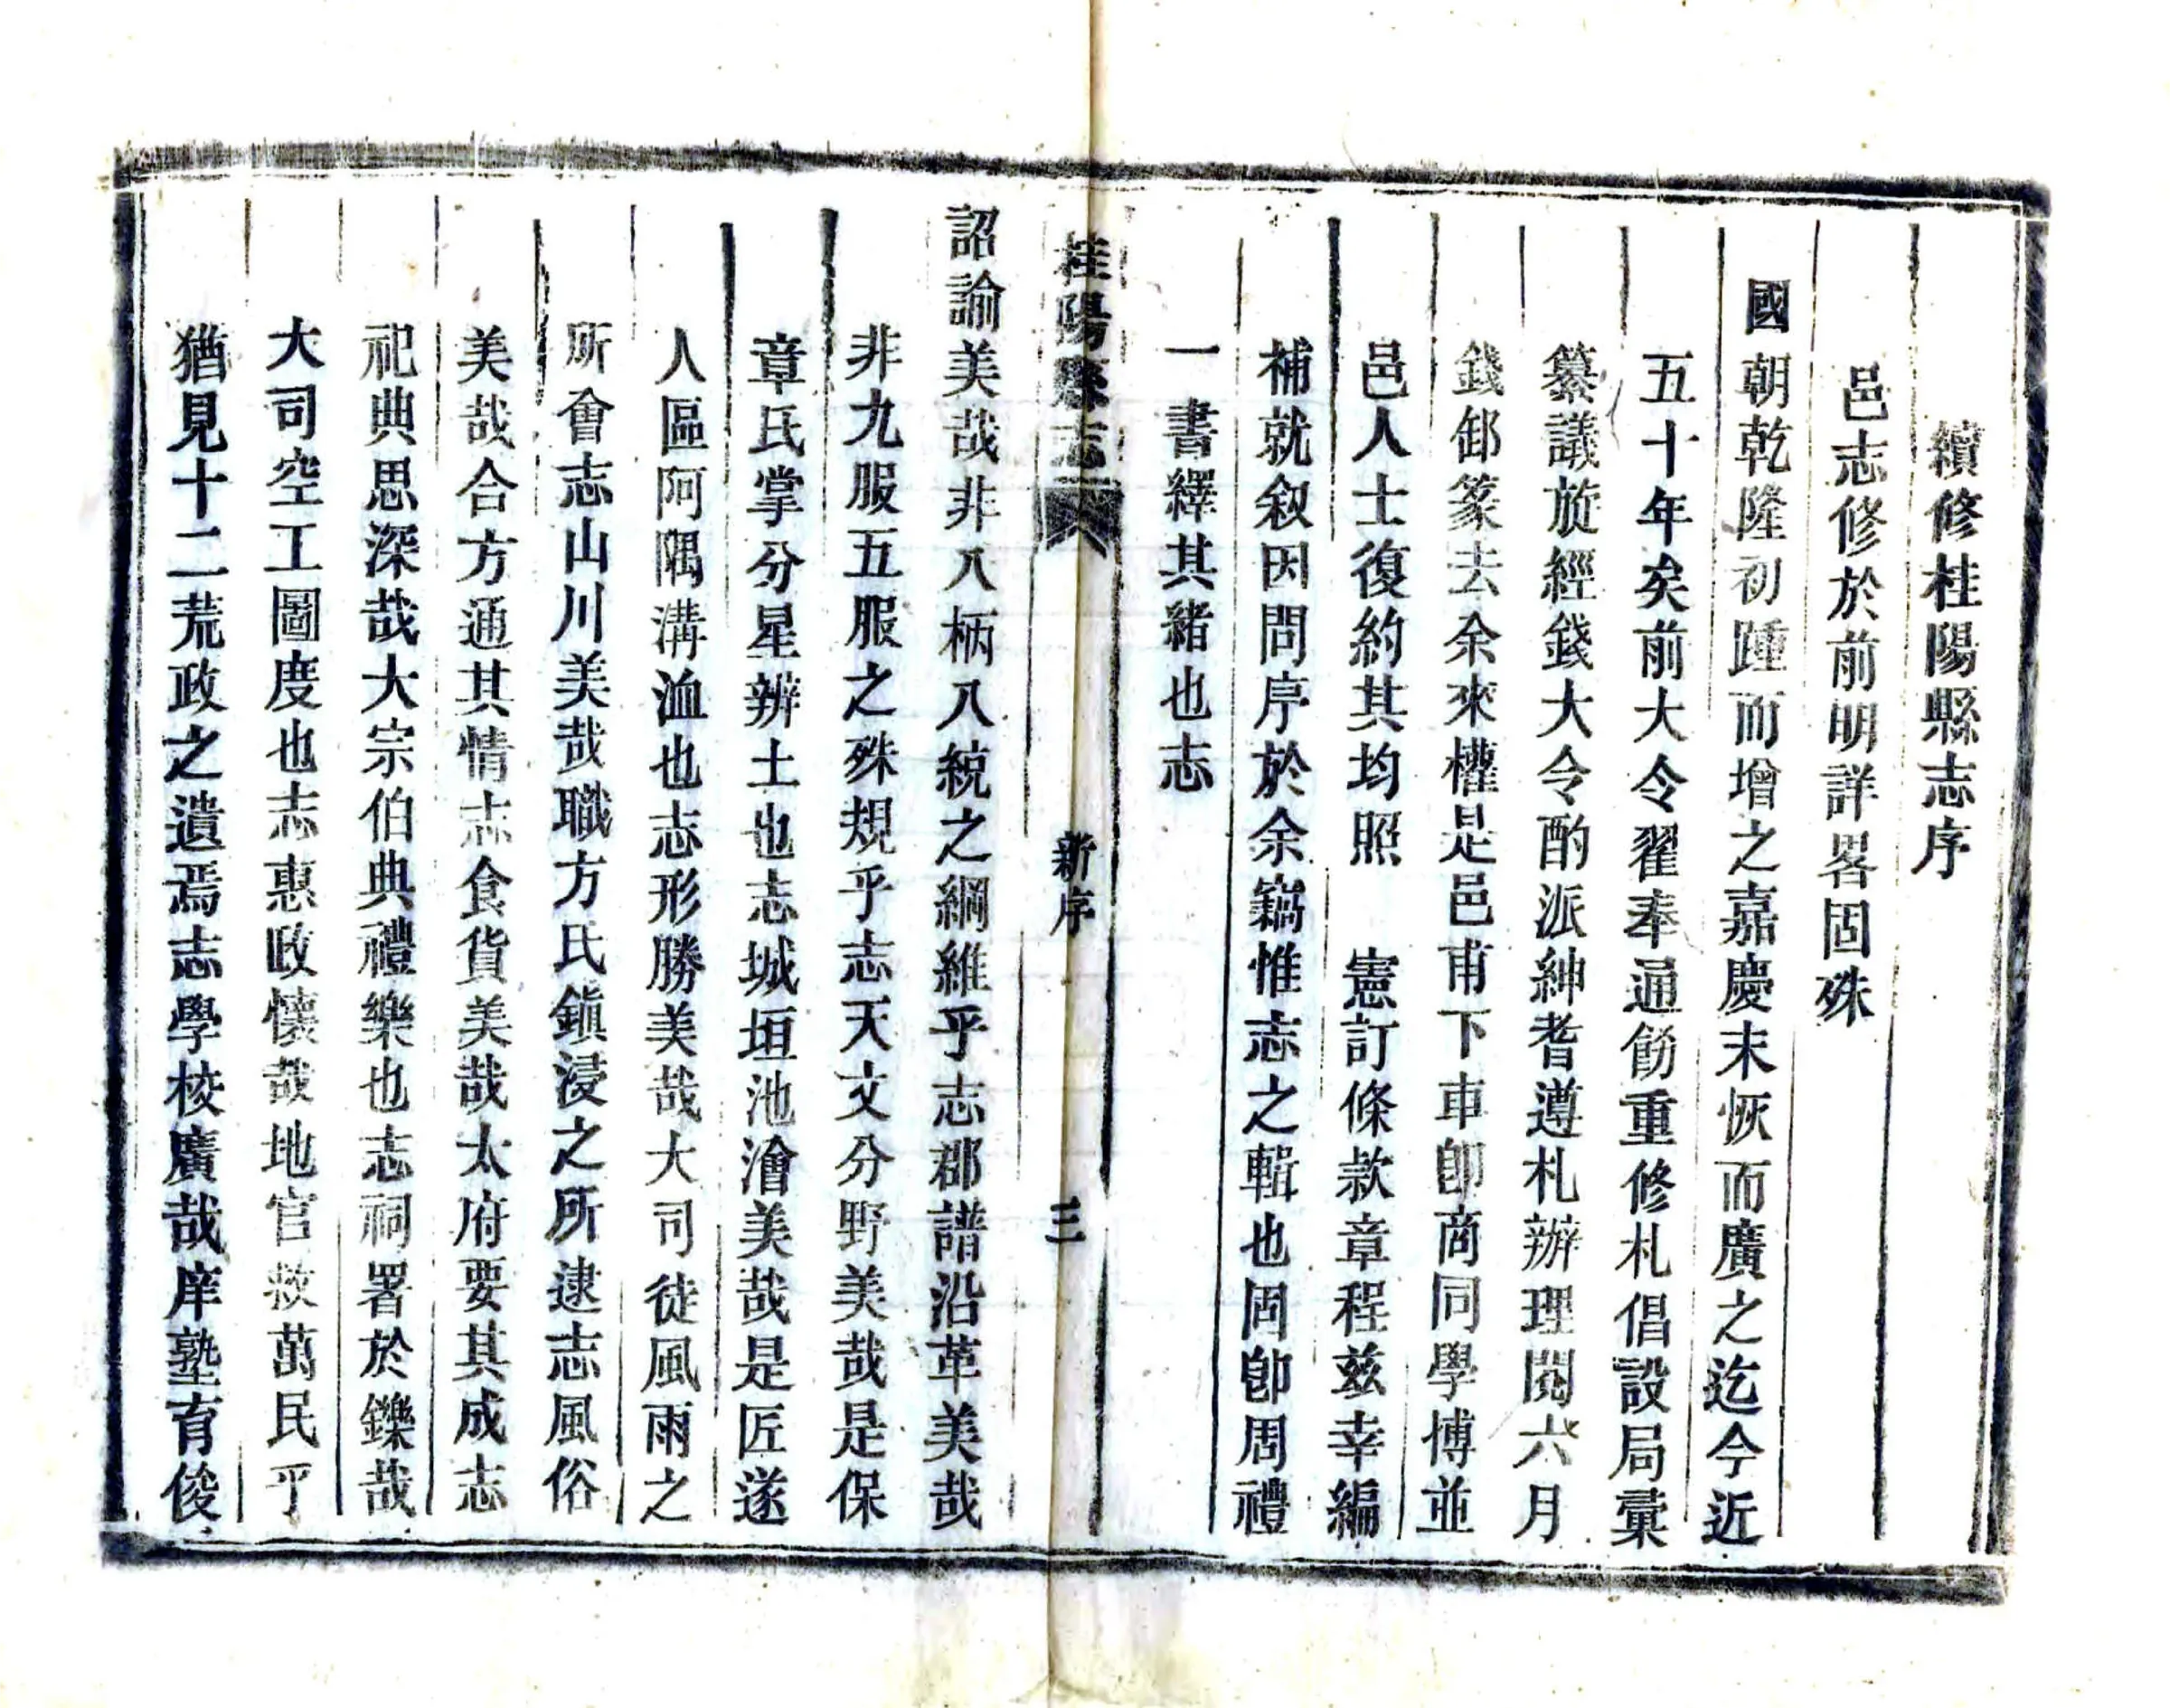 續修桂陽縣志序
邑志修於前明詳畧固殊
國朝乾隆初踵而增之嘉慶末恢而廣之迄今近
五十年矣前大令翟奉通飭重修札倡設局彙
纂議旋經錢大令酌派紳耆遵札辦理閱六月
錢卸篆去余來權是邑甫下車卽商同學博並
邑人士復約其均照 憲訂條款章程兹幸編
補就叙因問序於余竊惟志之輯也固卽周禮
一書繹其緒也志
桂陽縣志
新序
三
詔諭美哉非八柄八統之綱維乎志郡譜沿革美哉
非九服五服之殊規乎志天文分野美哉是保
章氏掌分星辨土也志城垣池澮美哉是匠遂
人區阿隅溝洫也志形勝美哉大司徒風雨之
所會志山川美哉職方氏鎮浸之所逮志風俗
美哉合方通其情志食貨美哉太府要其成志
祀典思深哉大宗伯典禮樂也志祠署於鑠哉
大司空工圖度也志惠政懷哉地官救萬民乎
猶見十二荒政之遺焉志學校廣哉庠塾育俊